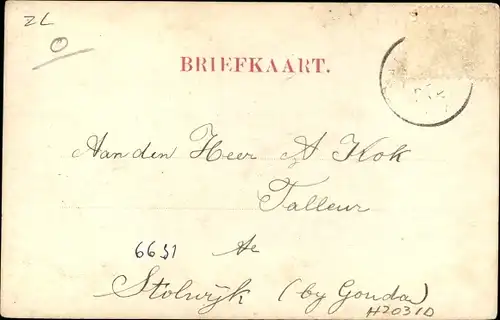 ZL
BRIEFKAART.
Aan den Heer A Kok
Talleur
6651
te
Stolwijk (by Gouda)
H2031D